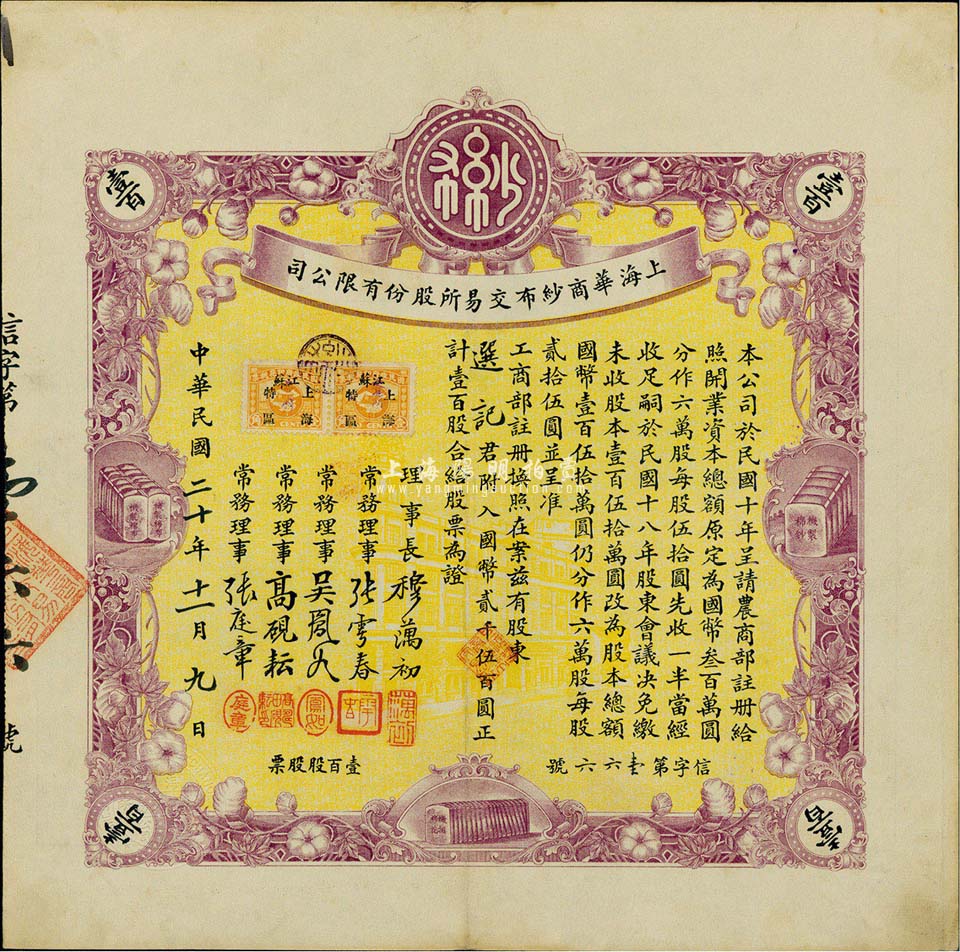 紗布
壹百
壹百
上海華商紗布交易所股份有限公司
本公司於民國十年呈請農商部註册給
照開業資本總額原定為國幣叁百萬圓
分作六萬股每股伍拾圓先收一半當經
收足嗣於民國十八年股東會議决免繳
未收股本壹百伍拾萬圓改為股本總額
國幣壹百伍拾萬圓仍分作六萬股每股
貳拾伍圓並呈准
工商部註册換照在案兹有股東
選記君附入國幣貳千伍百圓正
計壹百股合給股票為證
理事長穆藕初
常務理事張雩春
常務理事
常務理事高硯耘
常務理事張庭章
中華民國二十年十一月九日
江蘇
上海
特區
江蘇
上海
特區
CENTS
信字第
號
信字第壹六六號
壹百股股票
機製棉紗
壹百
壹百
上海陽明拍賣
www.yangmingauction.com